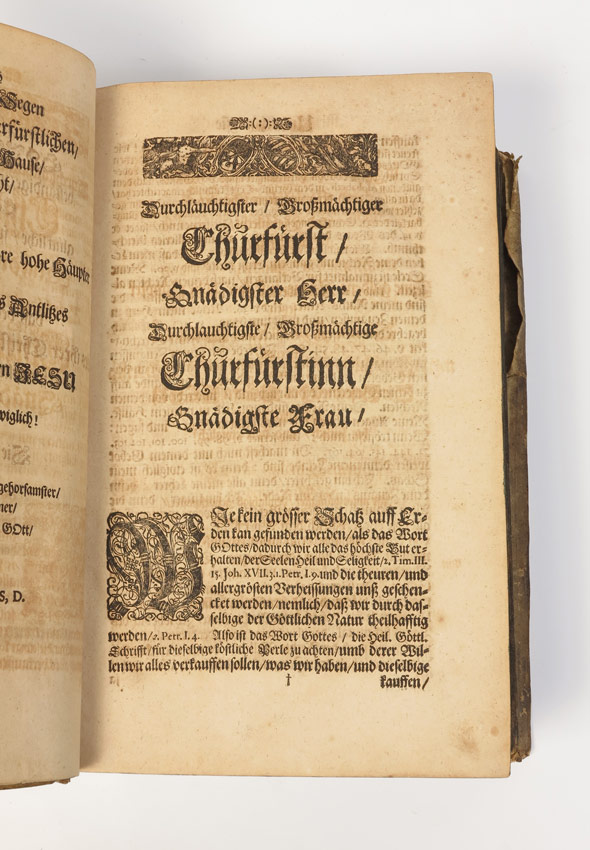 Segen
rfürstlichen/
Hause/
ht/
re hohe Häupter
s Antlitzes
n JESU
wiglich!
gehorsamster/
ner/
GOtt/
S, D.
Durchläuchtigster / Großmächtiger
Churfürst /
Gnädigster Herr /
Durchlauchtigste / Großmächtige
Churfürstinn /
Gnädigste Frau /
WIe kein grösser Schatz auff Er-
den kan gefunden werden / als das Wort
GOttes / dadurch wir alle das höchste Gut er-
halten / der Seelen Heil und Seligkeit / 2. Tim. III.
15. Joh. XVII. 3. 1. Petr. I. 9. und die theuren / und
allergrösten Verheissungen unß geschen-
cket werden / nemlich / daß wir durch das-
selbige der Göttlichen Natur theilhafftig
werden / 2. Petr. I. 4. Also ist das Wort Gottes / die Heil. Göttl.
Schrifft / für dieselbige köstliche Perle zu achten / umb derer Wil-
len wir alles verkauffen sollen / was wir haben / und dieselbige
† kauffen /